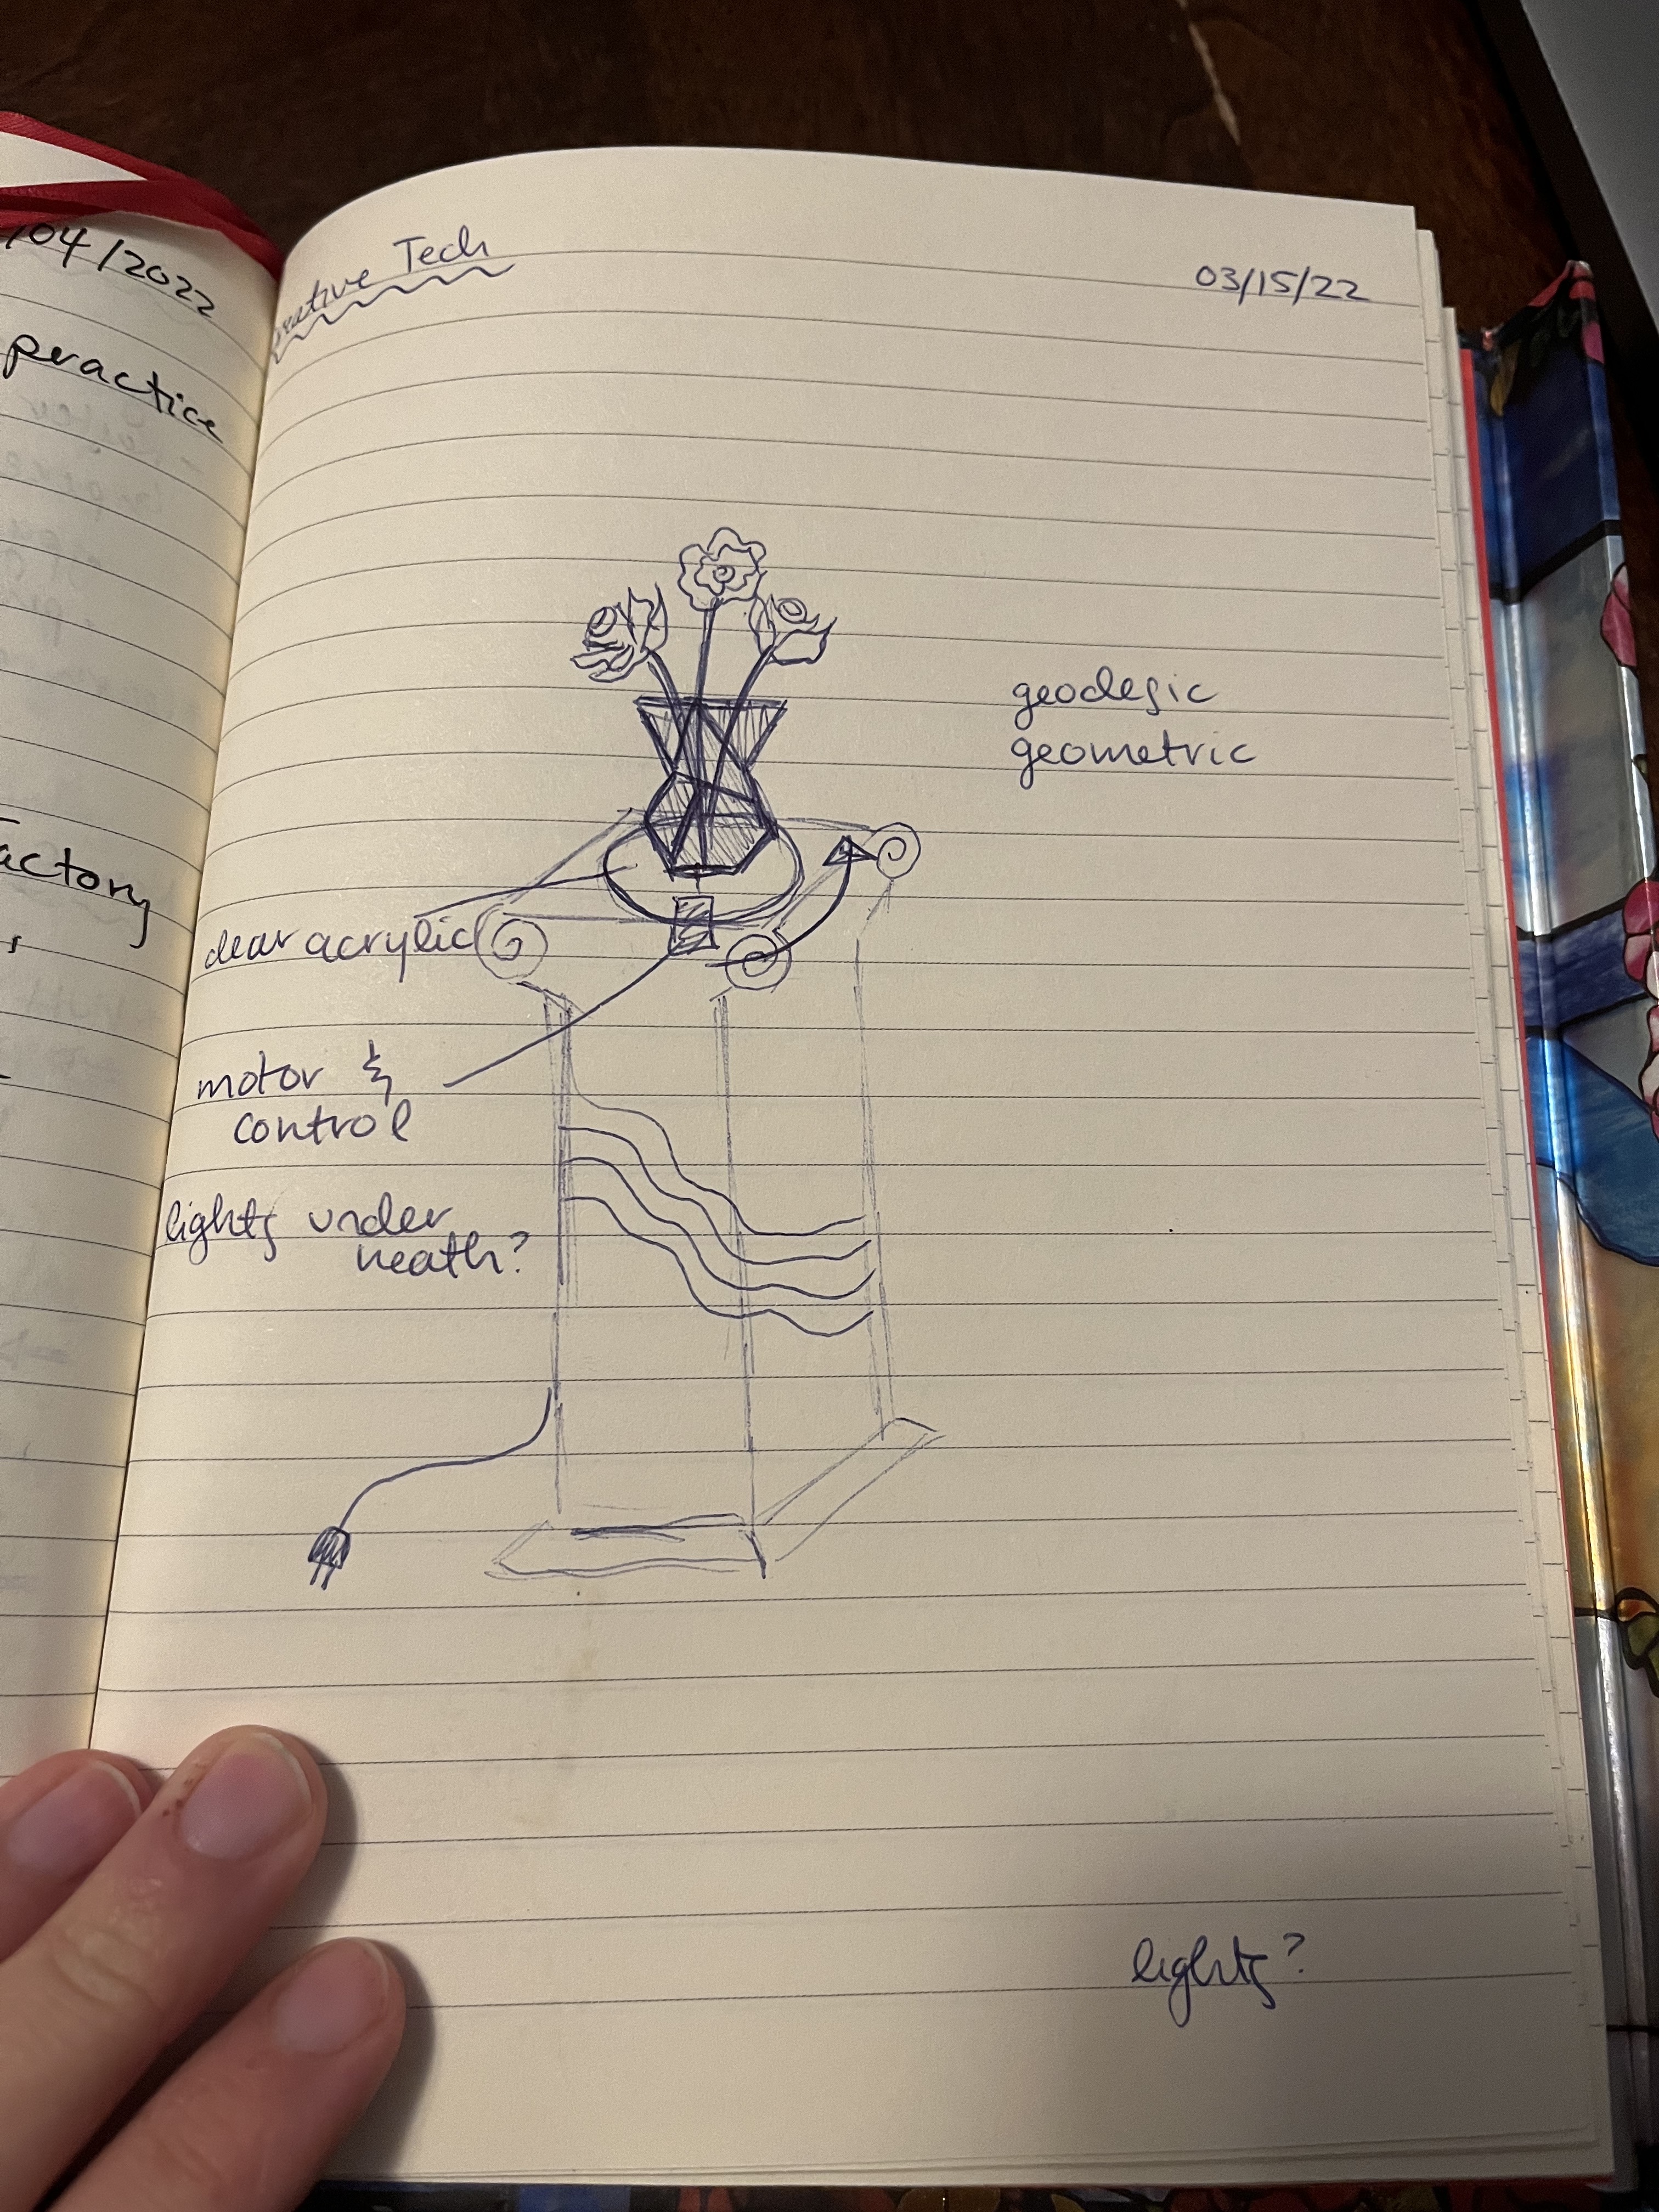 /04/2022
practice
actory
Creative Tech
03/15/22
geodesic
geometric
clear acrylic
motor &
control
lights under
neath?
lights?